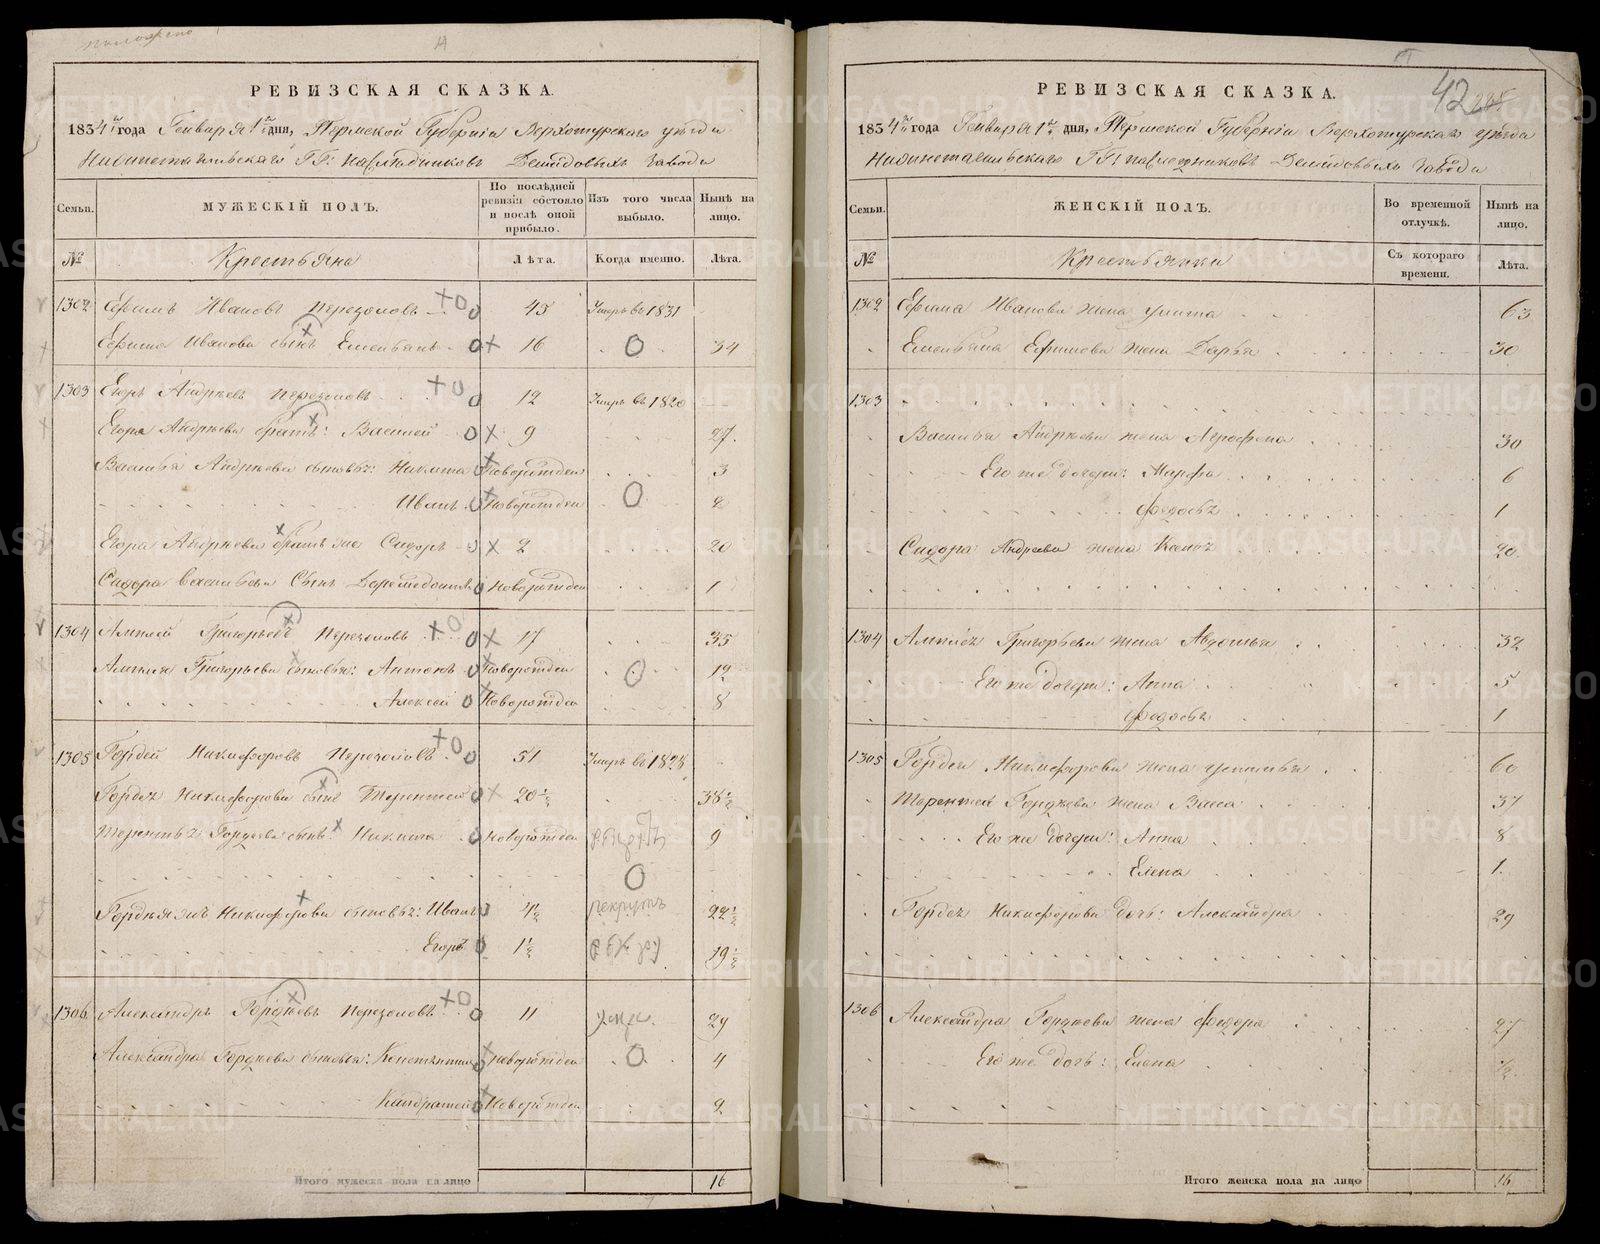 положено
РЕВИЗСКАЯ СКАЗКА.
1834 года Генваря 1 дня, Пермской Губерніи Верхотурскаго уѣзда
Нижнетагильскаго ГГ: наслѣдниковъ Демидовыхъ завода
Семьи.
МУЖЕСКІЙ ПОЛЪ.
По послѣдней ревизіи состояло и послѣ оной прибыло.
Изъ того числа выбыло.
Нынѣ на лицо.
№
Крестьяна
Лѣта.
Когда именно.
Лѣта.
1302 Ефимъ Ивановъ Перезоловъ 45 Умеръ въ 1831
Ефима Иванова сынъ Емельянъ 16 34
1303 Егоръ Андреевъ Перезоловъ 12 Умеръ въ 1820
Егора Андреева братъ: Василей 9 27
Василья Андреева сыновья: Никита Новорожден 3
Иванъ Новорожден 2
Егора Андреева братъ же Сидоръ 2 20
Сидора Васильева Сынъ Новорожден 1
1304 Григорьевъ Перезоловъ 17 35
Григорьева сыновья: Антонъ Новорожден 12
Алексей Новорожден 8
1305 Гордей Никифоровъ Перезоловъ 51 Умеръ въ 1828
Гордея Никифорова сынъ Терентей 20 1/2 38 1/2
Терентья Гордеева сынъ Никита Новорожден 9
Гордея жъ Никифорова сыновья: Иванъ 4 1/2 рекрутъ 22 1/2
Егоръ 1 1/2 19 1/2
1306 Александръ Гордеевъ Перезоловъ 11 умер. 29
Александра Гордеева сыновья: Константинъ Новорожден 4
Кандратей Новорожден 2
Итого мужеска пола на лицо 16
42
РЕВИЗСКАЯ СКАЗКА.
1834 года Генваря 1 дня, Пермской Губерніи Верхотурскаго уѣзда
Нижнетагильскаго ГГ: наследниковъ Демидовыхъ завода
Семьи.
ЖЕНСКІЙ ПОЛЪ.
Во временной отлучкѣ.
Нынѣ на лицо.
№
Крестьянки
Съ котораго времени.
Лѣта.
1302 Ефима Иванова жена Улита 63
Емельяна Ефимова жена Дарья 30
1303
Василья Андреева жена Агрофена 30
Его же дочери: Марфа 6
Федосья 1
Сидора Андреева жена 20
1304 Григорьева жена Авдотья 32
Его же дочери: Анна 5
Федосья 1
1305 Гордея Никифорова жена 60
Терентея Гордеева жена Васса 37
Его же дочери: Анна 8
Елена 1
Гордея Никифорова дочь: Александра 29
1306 Александра Гордеева жена Федора 27
Его же дочь: Елена 1/2
Итого женска пола на лицо 16
METRIKI.GASO-URAL.RU